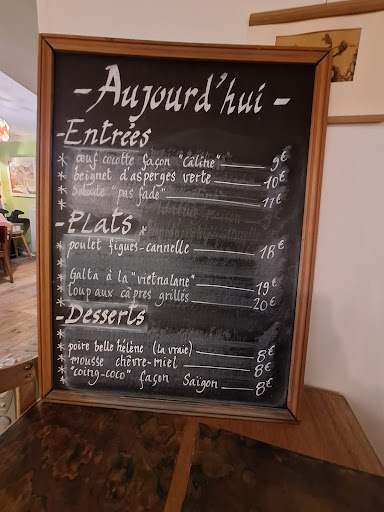 - Aujourd'hui -
- Entrées
* œuf cocotte façon "câline" 9€
* beignet d'asperges verte 10€
* Salade "pas fade" 11€
- Plats
* poulet figues-cannelle 18€
* Galta à la "vietnalane" 19€
* loup aux câpres grillés 20€
- Desserts
* poire belle hélène (la vraie) 8€
* mousse chèvre-miel 8€
* "coing-coco" façon Saïgon 8€